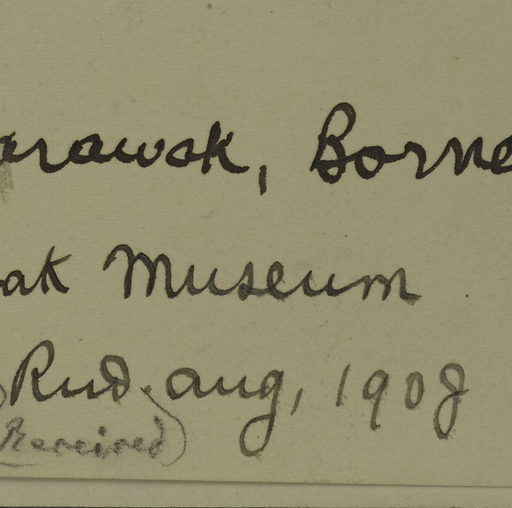 arawak, Borne
ak Museum
Rud. aug, 1908
(Received)